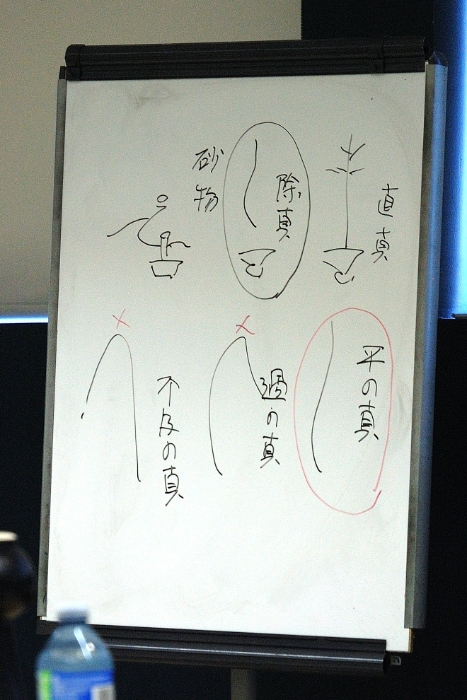 直真
除真
砂物
平の真
過の真
不及の真